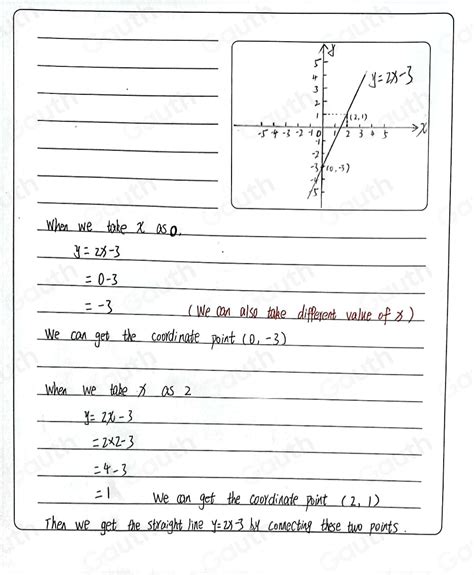 y
5
4
3
2
1
y=2x-3
(2,1)
-5 -4 -3 -2 -1 0 1 2 3 4 5
x
-1
-2
-3
(0,-3)
-4
-5
When we take x as 0.
y = 2x-3
= 0-3
= -3
(We can also take different value of x)
We can get the coordinate point (0, -3)
When we take x as 2
y= 2x-3
=2×2-3
=4-3
=1
We can get the coordinate point (2, 1)
Then we get the straight line y=2x-3 by connecting these two points.
Gauth